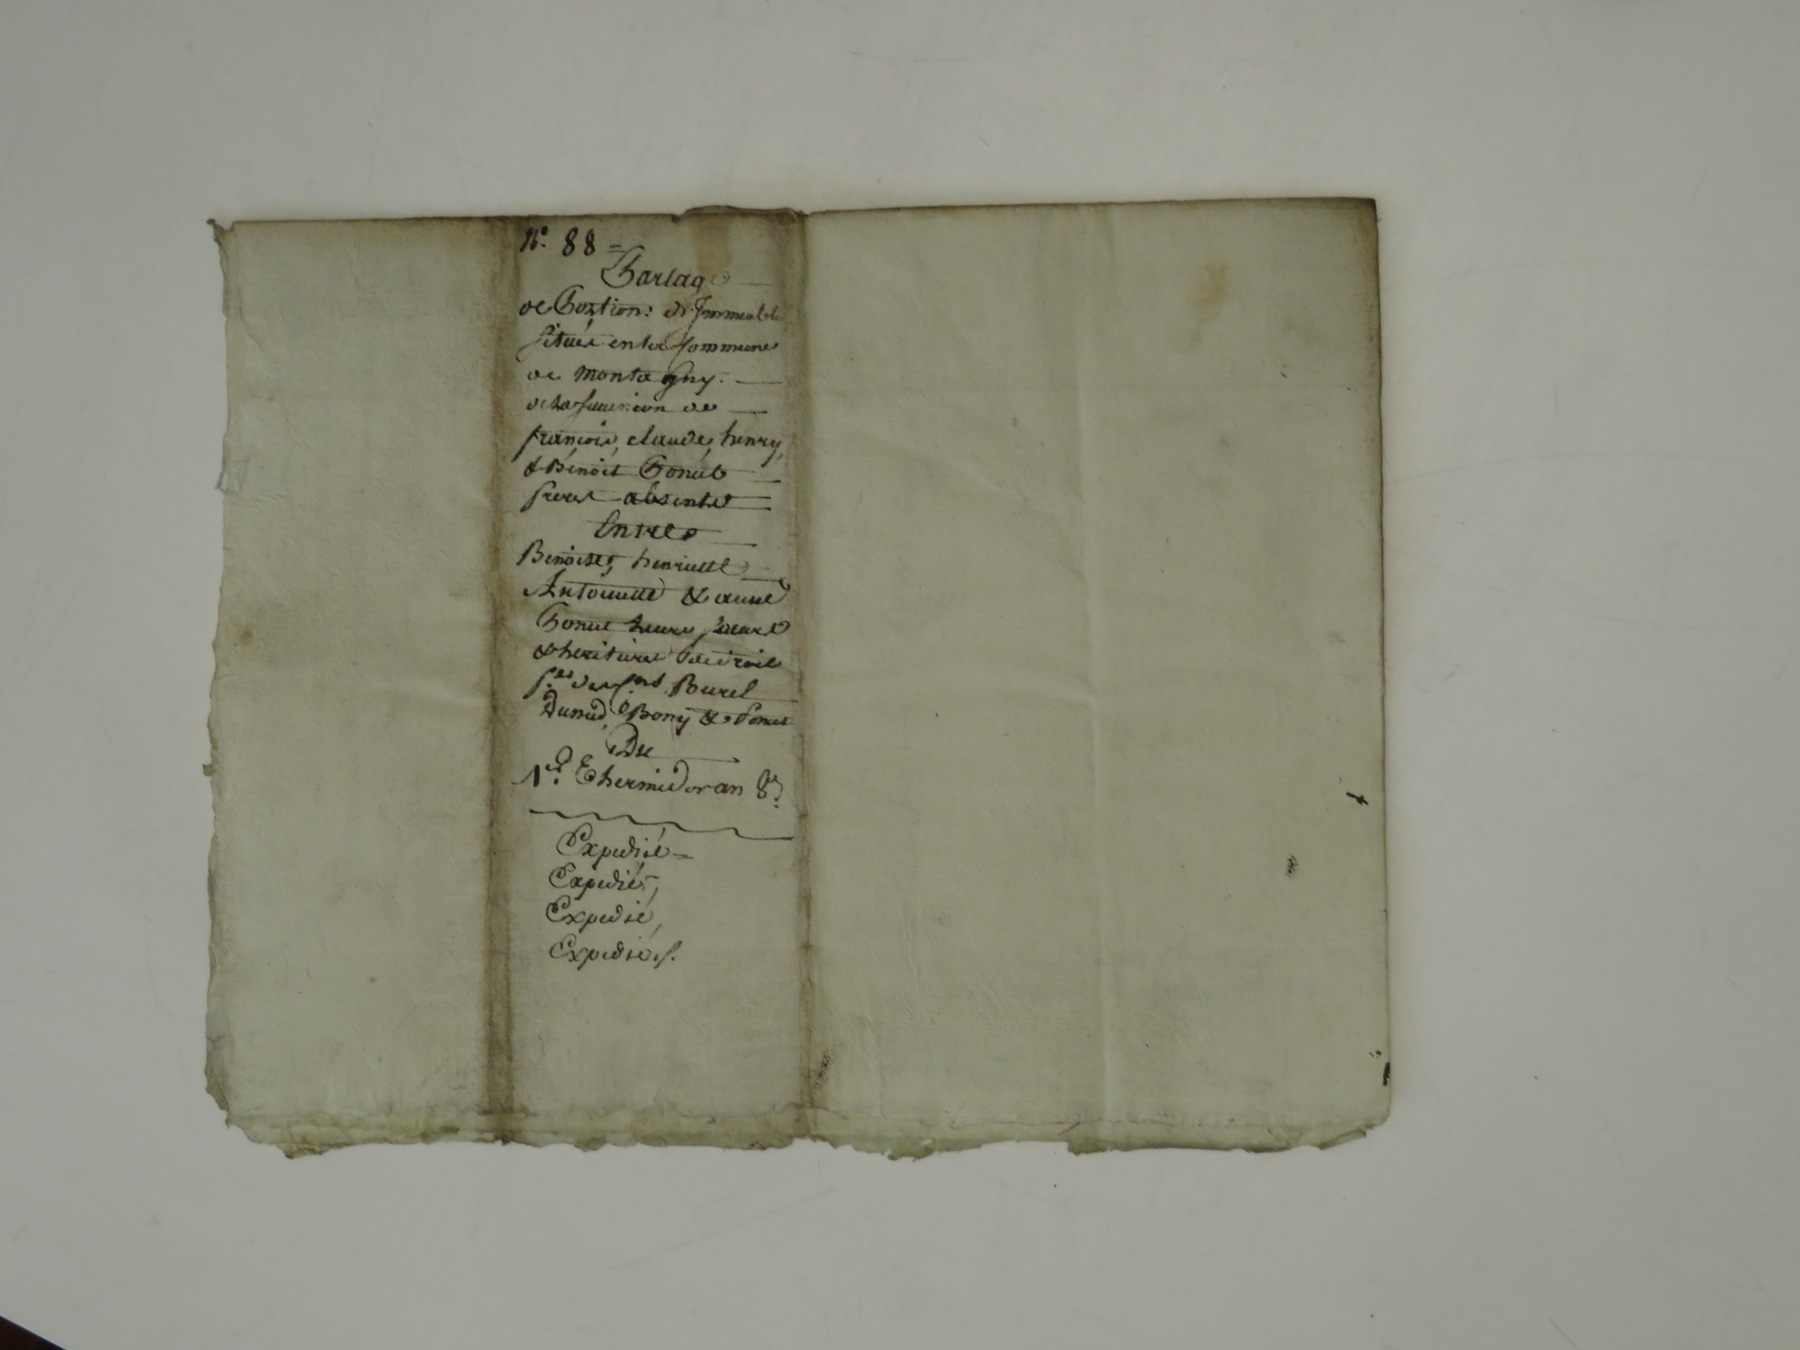 N.° 88 =
Partage
de Portion: d'Immeuble
situés en la Commune
de Montagny.
de la succession de
françois, claude, henry,
& Bénoit Ponut
freres absents
Entre
Benoiste, henriette
Antoinette & anne
Ponut leurs sœurs
& heritieres de droit
f.es des C.ens Burel
Dumd, Bony & Ponut
Du
1.er Thermidor an 8.e
Expedié
Expedié,
Expedié,
Expedié f.